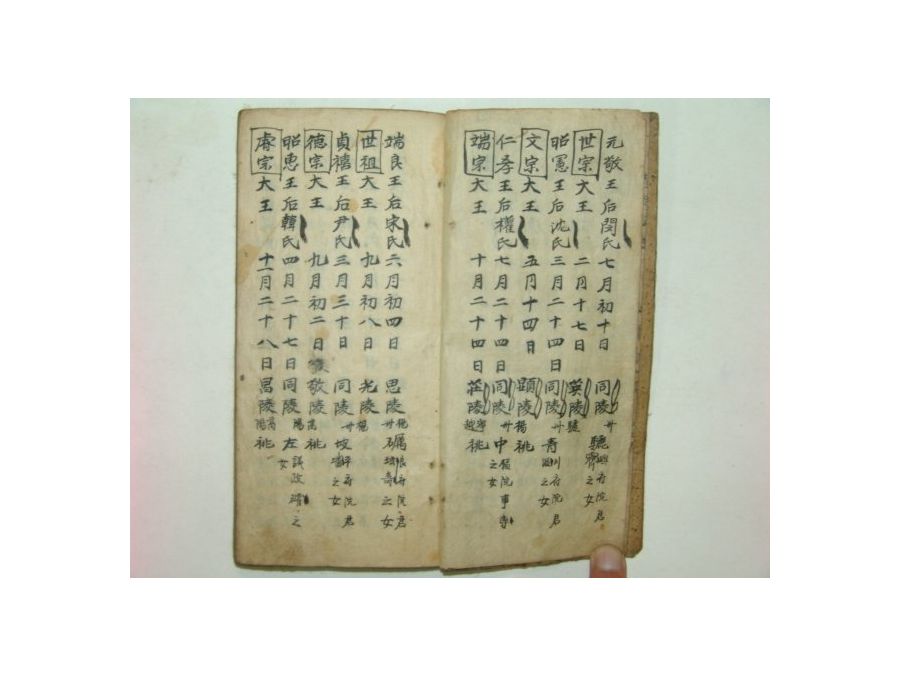 元敬王后閔氏七月初十日同陵 驪興府院君霽之女
世宗大王二月十七日英陵驪
昭憲王后沈氏三月二十四日同陵 青川府院君溫之女
文宗大王五月十四日顯陵楊祧
仁孝王后權氏七月二十四日同陵 中樞院事專之女
端宗大王十月二十四日莊陵寧越祧
端良王后宋氏六月初四日思陵楊 礪良府院君
世祖大王九月初八日光陵楊
貞禧王后尹氏三月三十日同陵 坡平府院君璠之女
德宗大王九月初二日敬陵高祧
昭惠王后韓氏四月二十七日同陵 左議政確之女
睿宗大王十一月二十八日昌陵高陽祧